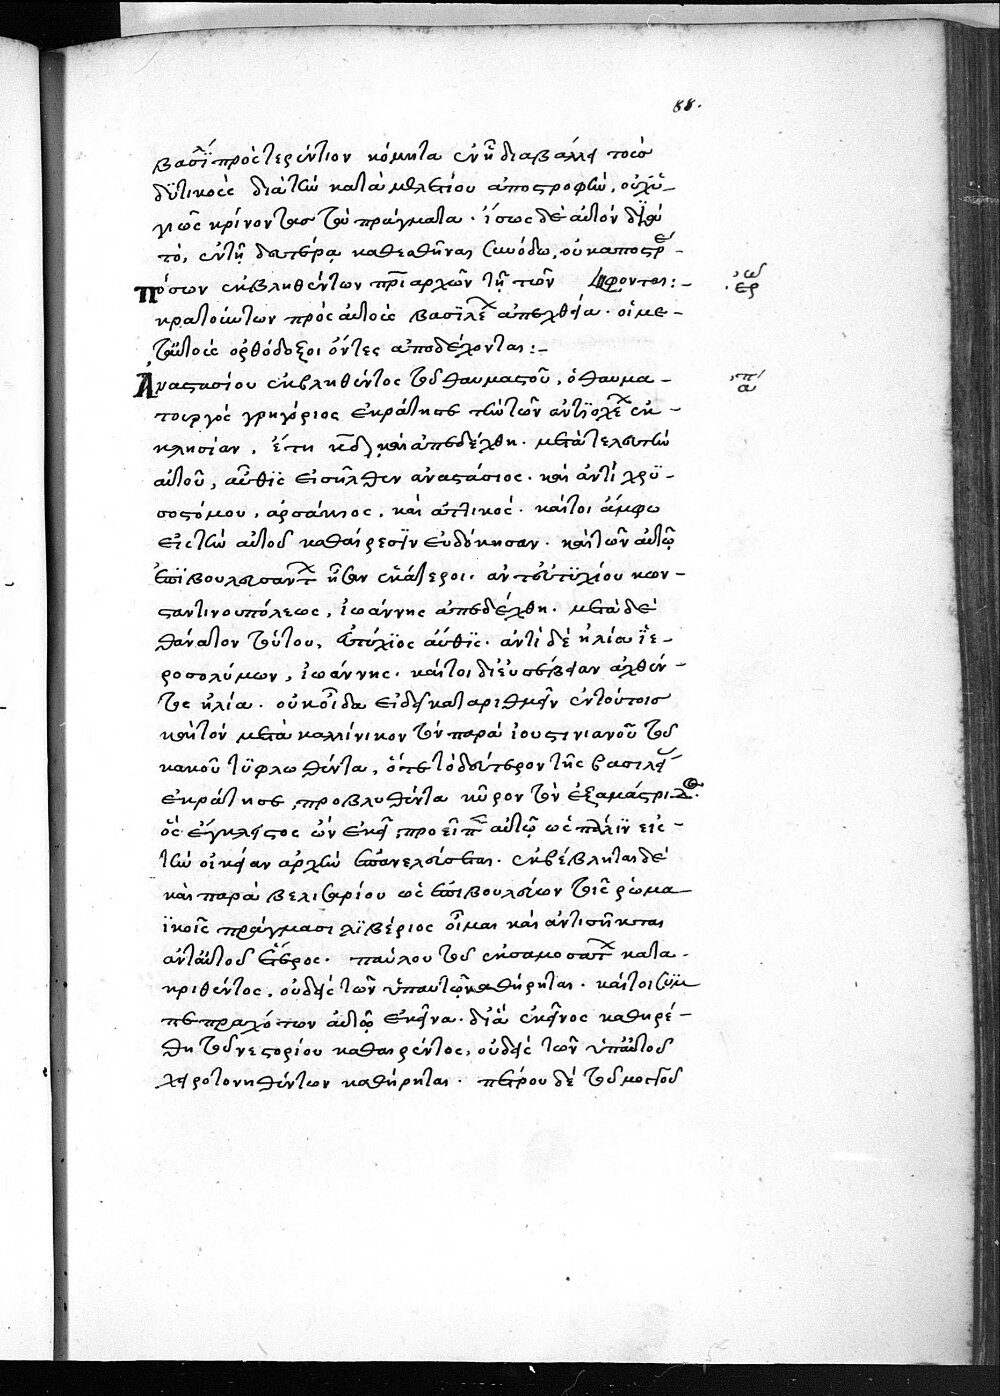 88.
πρὸς τερέντιον κόμητα ἐν ᾗ διαβάλλει τοὺς
δυτικοὺς διὰ τὴν κατὰ μελετίου ἀποστροφὴν, οὐχ ὑ-
γιῶς κρίνοντας τὰ πράγματα. ἴσως δὲ αὐτὸν διὰ
το, ἐν τῇ δευτέρᾳ καθεσθῆναι συνόδῳ, οὐκ
πόσων ἐκβληθέντων πριαρχῶν τῇ τῶν
κρατούντων πρὸς αὐτοὺς βασιλέων ἀπεχθείᾳ. οἱ με-
τ' αὐτοὺς ὀρθόδοξοι ὄντες ἀποδέχονται:-
Ἀναστασίου ἐκβληθέντος τοῦ θαυμαστοῦ, ὁ θαυμα-
τουργὸς γρηγόριος ἐκράτησε τὴν τῶν ἀντιοχέων ἐκ-
κλησίαν, ἔτη κδ καὶ ἀπεδέχθη. μετὰ τελευτὴν
αὐτοῦ, αὖθις εἰσῆλθεν ἀναστάσιος. καὶ ἀντὶ χρυ-
σοστόμου, ἀρσάκιος, καὶ ἀττικός. καίτοι ἄμφω
εἰς τὴν αὐτοῦ καθαίρεσιν εὐδόκησαν. καὶ τῶν αὐτῷ
ἐπιβουλευσάντων ἦσαν ἑκάτεροι. ἀντ' εὐτυχίου κων-
σταντινουπόλεως, ἰωάννης ἀπεδέχθη. μετὰ δὲ
θάνατον τούτου, εὐτύχιος αὖθις. ἀντὶ δὲ ἠλία ἱε-
ροσολύμων, ἰωάννης. καίτοι δι' εὐσέβειαν ἀχθέν-
τος ἠλία. οὐκ οἶδα εἰ δεῖ καταριθμεῖν ἐν τούτοις
καὶ τὸν μετὰ καλλίνικον τὸν παρὰ ἰουστινιανοῦ τοῦ
κακοῦ τυφλωθέντα, ὅτε τὸ δεύτερον τῆς βασιλείας
ἐκράτησε, προβληθέντα κῦρον τὸν ἐξ ἀμάστριδος.
ὃς ἔγκλειστος ὢν ἐκεῖ, προεῖπεν αὐτῷ ὡς πάλιν εἰς
τὴν οἰκείαν ἀρχὴν ἐπανελεύσεται. ἐκβέβληται δὲ
καὶ παρὰ βελισαρίου ὡς ἐπιβουλεύων τοῖς ῥωμα-
ϊκοῖς πράγμασι λιβέριος οἶμαι καὶ ἀντισῆκται
ἀντ' αὐτοῦ ἕτερος. παύλου τοῦ ἐκ σαμοσάτων κατα-
κριθέντος, οὐδεὶς τῶν ὑπ' αὐτῶν καθῄρηται. καίτοι συμ
πεπραχότων αὐτῷ ἐκεῖνα. δι' ἃ ἐκεῖνος καθῃρέ-
θη τοῦ νεστορίου καθαιρεθέντος, οὐδεὶς τῶν ὑπ' αὐτοῦ
χειροτονηθέντων καθῄρηται. πέτρου δὲ τοῦ μογγοῦ